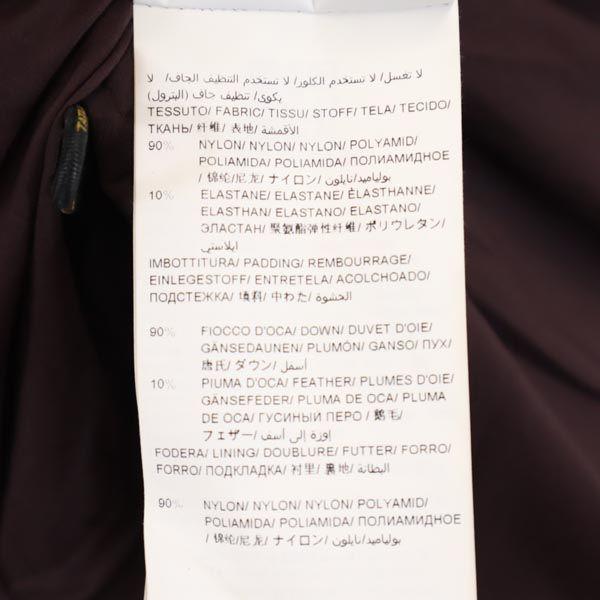 لا تغسل/ لا تستخدم الكلور/ لا تستخدم التنظيف الجاف/ لا
يكوى/ تنظيف جاف (البترول)
TESSUTO/ FABRIC/ TISSU/ STOFF/ TELA/ TECIDO/
ТКАНЬ/ 纤维/ 表地/ الأقمشة
90% NYLON/ NYLON/ NYLON/ POLYAMID/
POLIAMIDA/ POLIAMIDA/ ПОЛИАМИДНОЕ
/ 锦纶/尼龙/ ナイロン/ بولياميد/نايلون
10% ELASTANE/ ELASTANE/ ÉLASTHANNE/
ELASTHAN/ ELASTANO/ ELASTANO/
ЭЛАСТАН/ 聚氨酯弹性纤维/ ポリウレタン/
ايلاستي
IMBOTTITURA/ PADDING/ REMBOURRAGE/
EINLEGESTOFF/ ENTRETELA/ ACOLCHOADO/
ПОДСТЕЖКА/ 填料/ 中わた/ الحشوة
90% FIOCCO D'OCA/ DOWN/ DUVET D'OIE/
GÄNSEDAUNEN/ PLUMÓN/ GANSO/ ПУХ/
唐氏/ ダウン/ أسفل
10% PIUMA D'OCA/ FEATHER/ PLUMES D'OIE/
GÄNSEFEDER/ PLUMA DE OCA/ PLUMA
DE OCA/ ГУСИНЫЙ ПЕРО / 鵝毛/
フェザー/ اوزة إلى أسف
FODERA/ LINING/ DOUBLURE/ FUTTER/ FORRO/
FORRO/ ПОДКЛАДКА/ 衬里/ 裏地/ البطانة
90% NYLON/ NYLON/ NYLON/ POLYAMID/
POLIAMIDA/ POLIAMIDA/ ПОЛИАМИДНОЕ
/ 锦纶/尼龙/ ナイロン/ بولياميد/نايلون